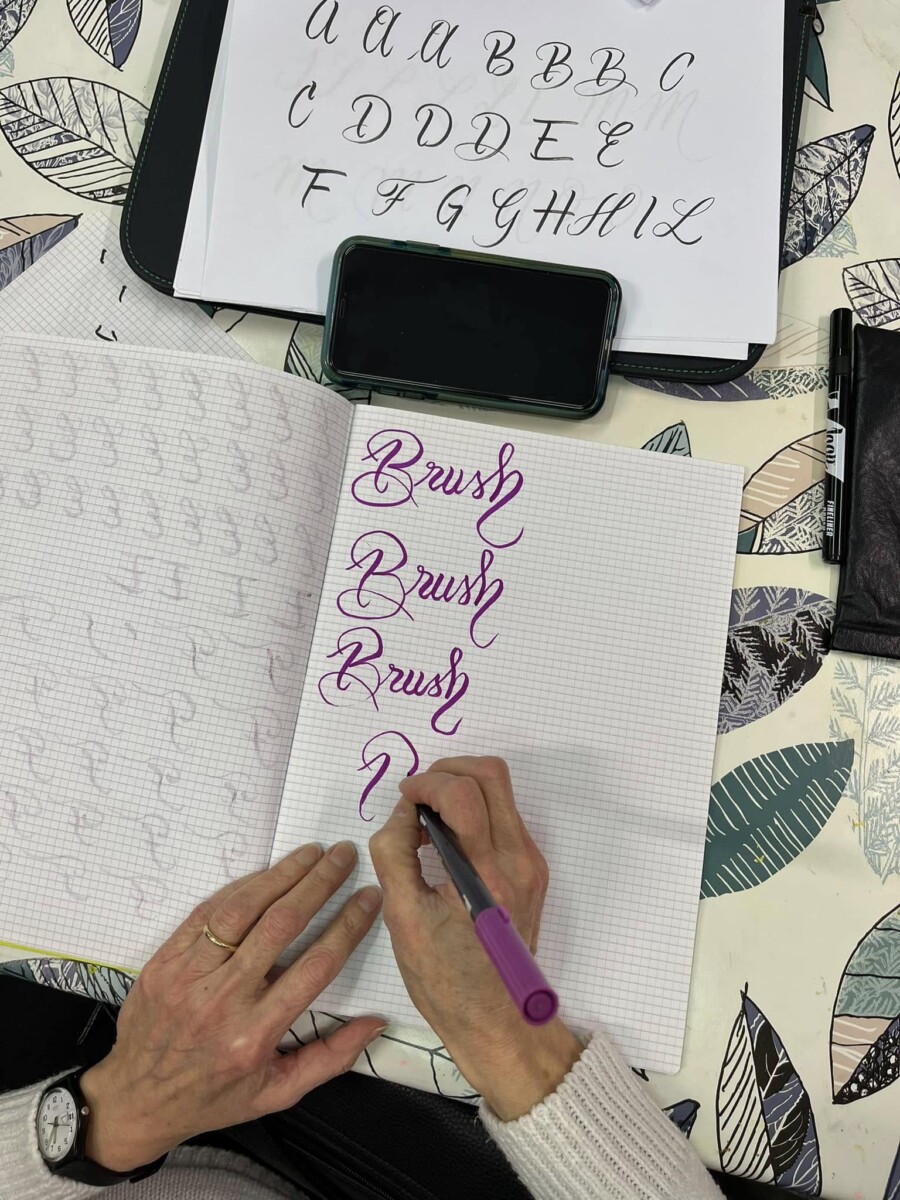 A A A B B B C
C D D D E E
F F G G H H I L
Brush
Brush
Brush
FINELINER